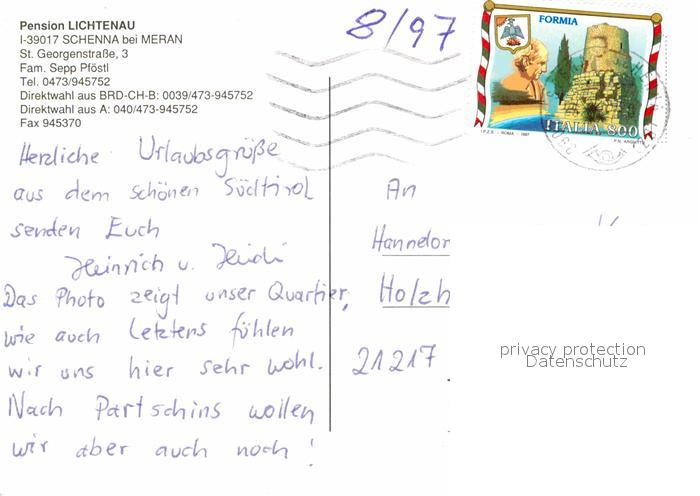 Pension LICHTENAU
I-39017 SCHENNA bei MERAN
St. Georgenstraße, 3
Fam. Sepp Pföstl
Tel. 0473/945752
Direktwahl aus BRD-CH-B: 0039/473-945752
Direktwahl aus A: 040/473-945752
Fax 945370
8/97
FORMIA
ITALIA 800
I.P.Z.S. - ROMA - 1997
Herzliche Urlaubsgrüße
aus dem schönen Südtirol
senden Euch
Heinrich u. Heidi
Das Photo zeigt unser Quartier,
wie auch letztens fühlen
wir uns hier sehr wohl.
Nach Partschins wollen
wir aber auch noch!
An
Hannelor
Holzh
21217
privacy protection
Datenschutz